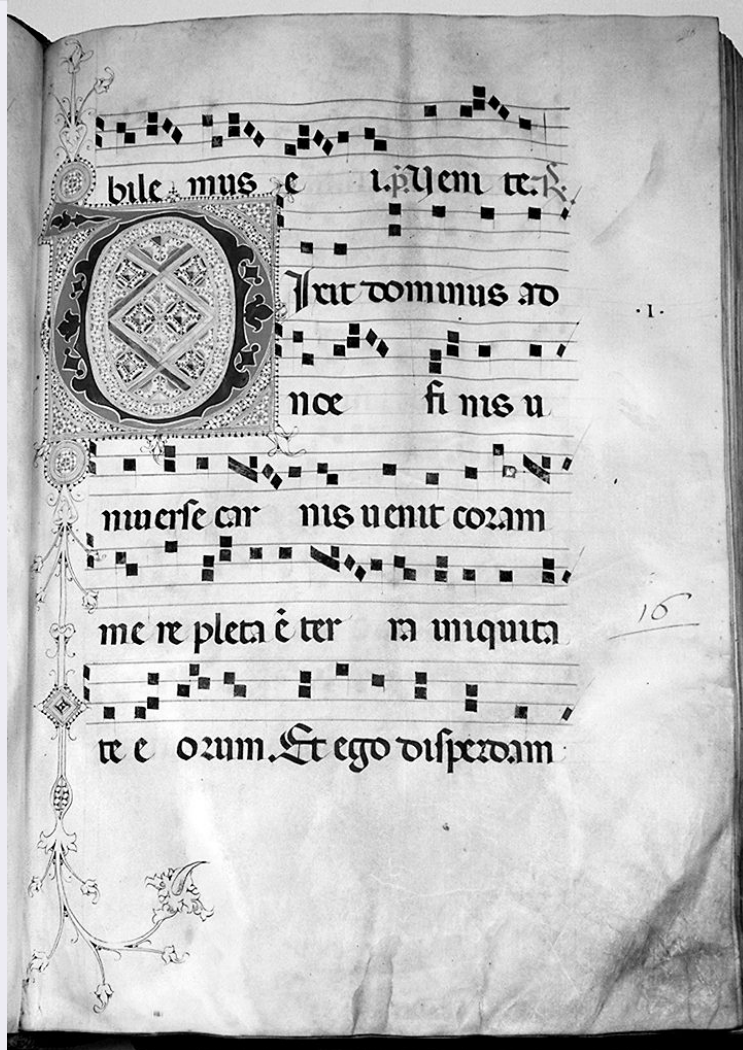 bile mus e i. p̄. Veni te. R̄.
Dixit dominus ad
·I·
noe fi nis u
niuerse car nis uenit coram
me re pleta ē ter ra iniquita
16
te e orum. Et ego disperdam